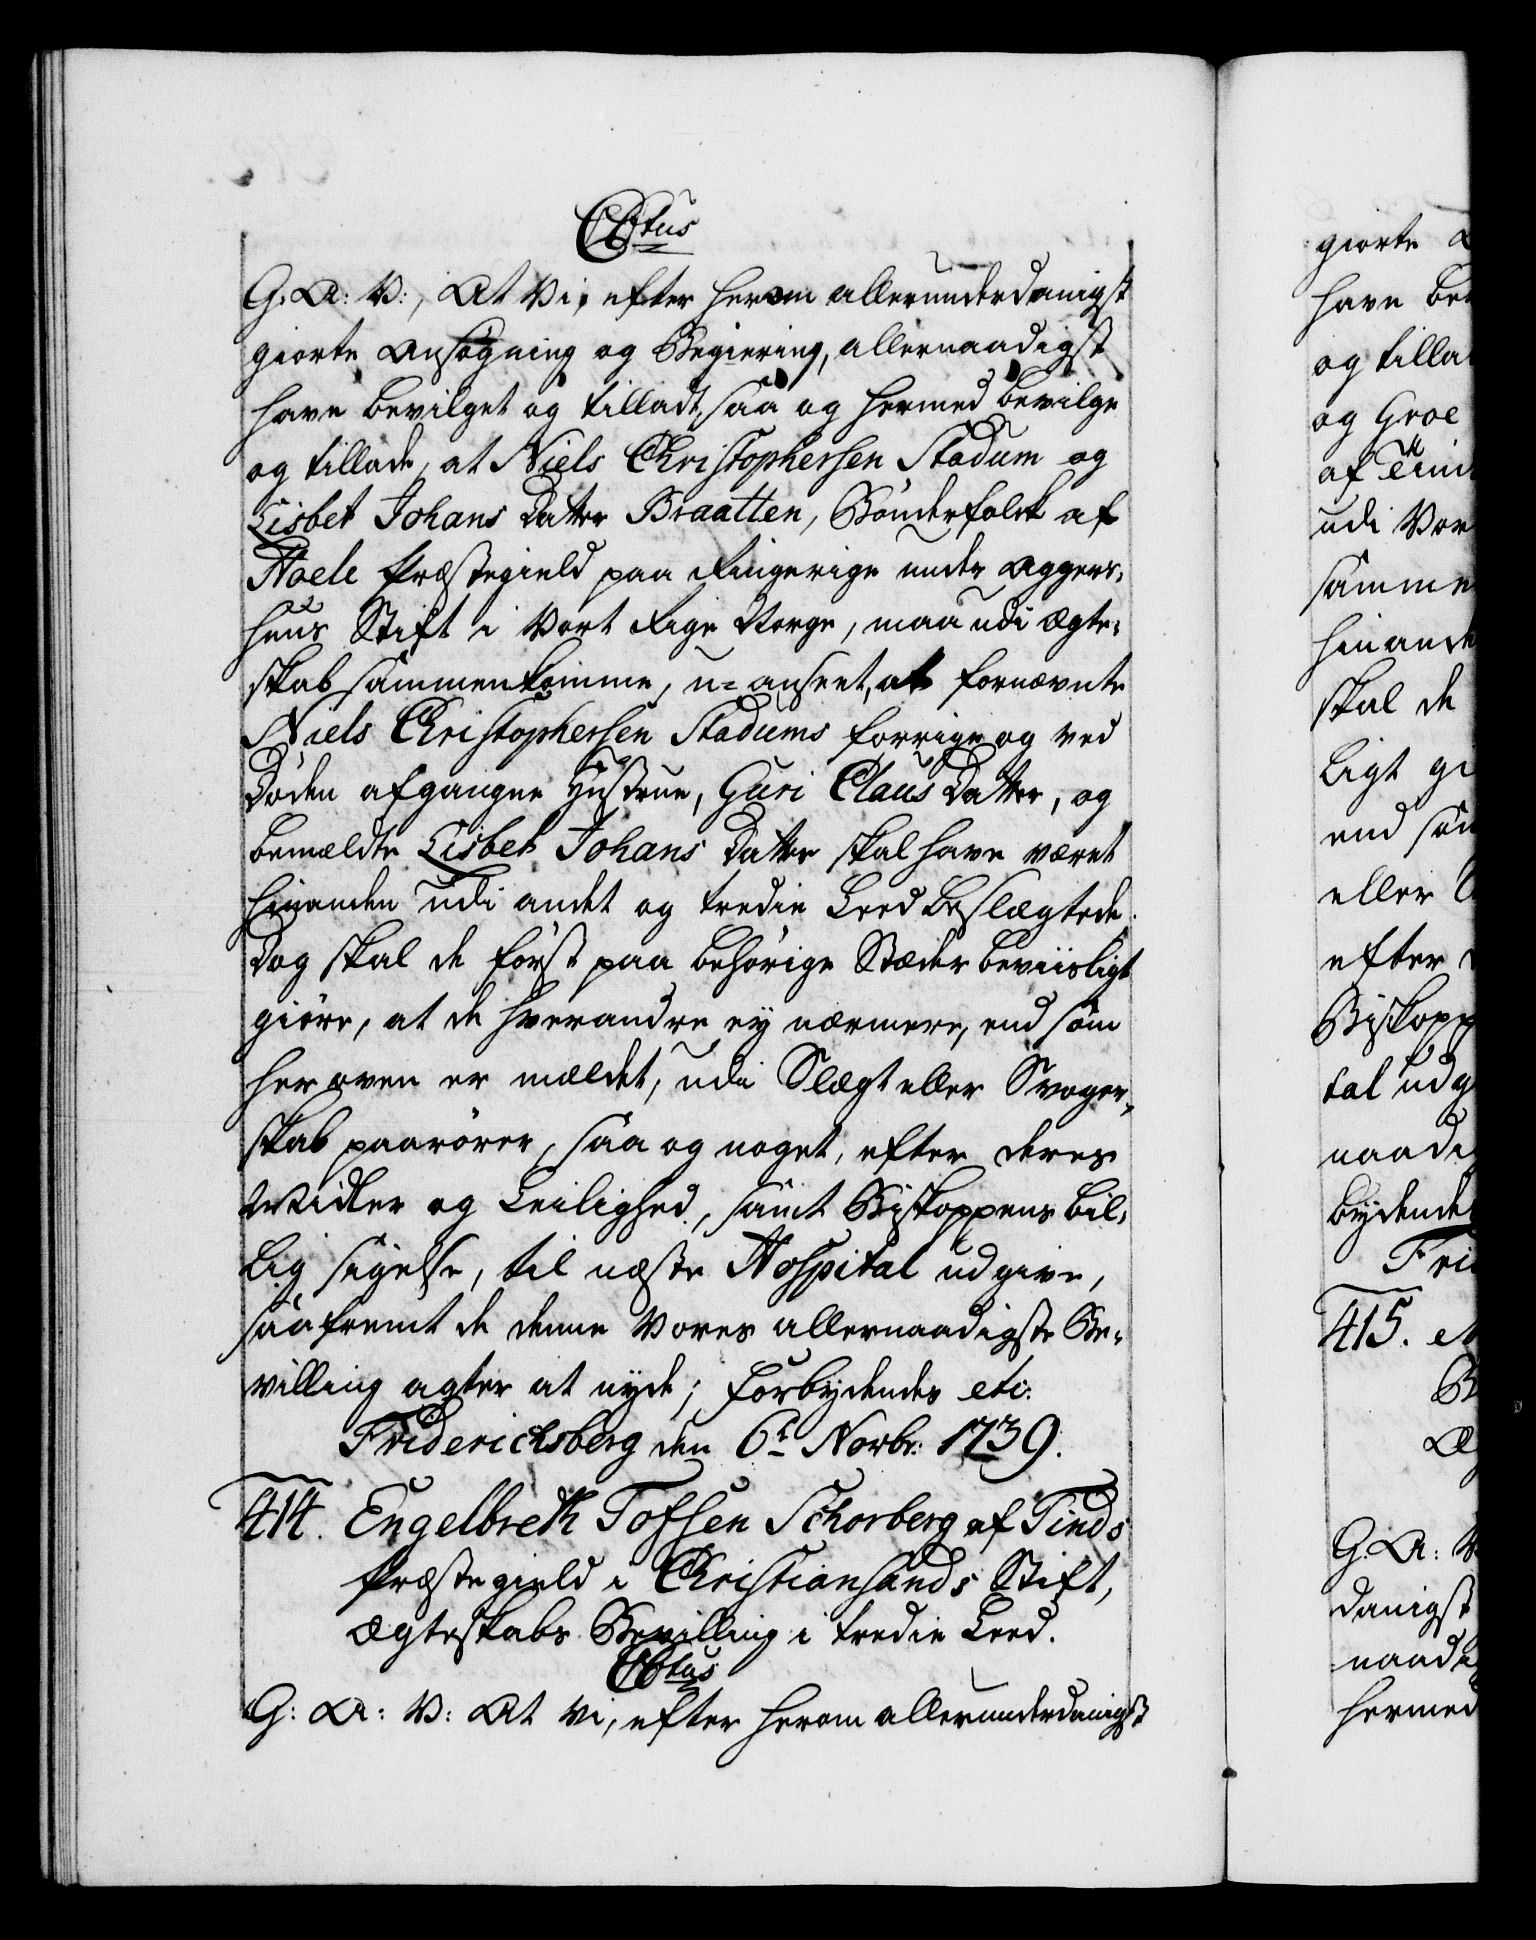 CCtus
G. A: V:, At Vi, efter herom allerunderdanigst
giorte Ansøgning og Begiering, allernaadigst
have bevilget og tilladt, saa og hermed bevilge
og tillade, at Niels Christophersen Stadum og
Lisbet Johans Datter Braatten, Bønderfolck af
Hoele Præstegield paa Ringerige under Aggers-
huus Stift i Vort Rige Norge, maa udi Ægte-
skab sammenkomme, u-anseet, at fornævnte
Niels Christophersen Stadums forrige og ved
Døden afgangne Hustrue, Guri Claus Datter, og
bemældte Lisbet Johans Datter skal have været
hinanden udi andet og tredie Leed beslægtede.
Dog skal de først paa behørige Stæder beviisligt
giøre, at de hverandre ey nærmere, end som
her oven er mældet, udi Slægt eller Svoger-
skab paarører, saa og noget, efter deres
Midler og Leilighed, samt Biskoppens bil-
lig sigelse, til næste Hospital udgive,
saafremt de denne Vores allernaadigste Be-
villing agter at nyde; Forbydendes etc:
Friderichsberg den 6t Novbr: 1739.
414. Engelbreth Tofsen Schorberg af Tinds
Præstegield i Christiansands Stift,
Ægteskabs Bevilling i tredie Leed.
CCtus
G: A: V: At Vi, efter herom allerunderdanigst
giorte
have
og
og Groe
af
udi
samme
skal de
ligt
end
eller
efter
naad
Fri
415.
G. A:
danigst
naad
hermed